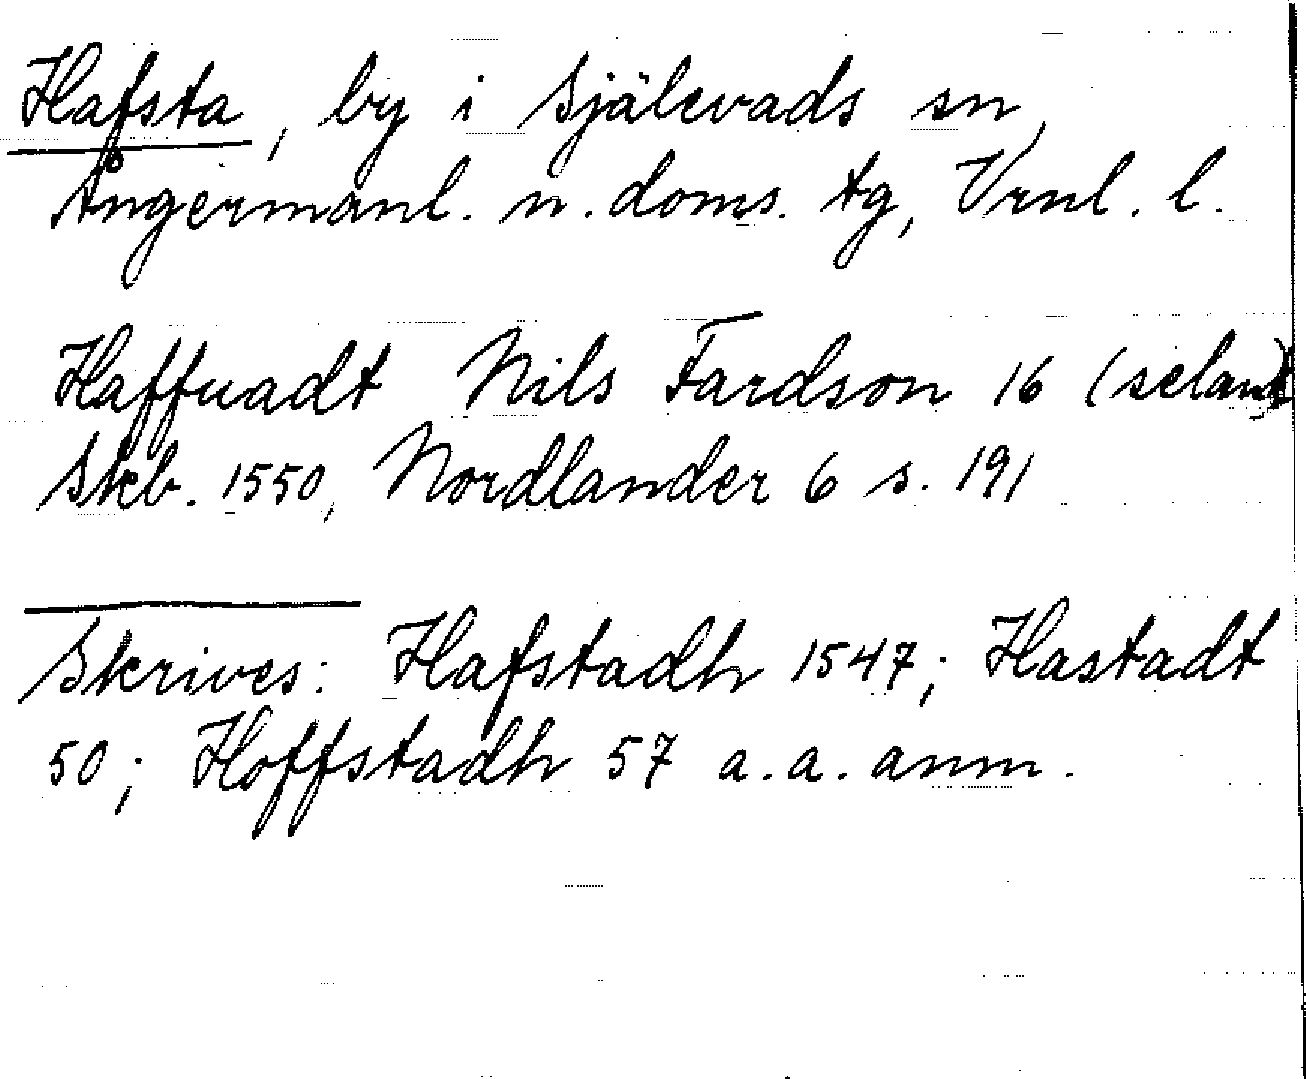 Hafsta, by i Själevads sn,
Ångermanl. n. doms. tg, Vrnl. l.
Haffuadt Nils Fardson 16 (seland)
Skb. 1550, Nordlander 6 s. 191
Skrives: Hafstadh 1547; Hastadt
50; Hoffstadh 57 a.a. anm.